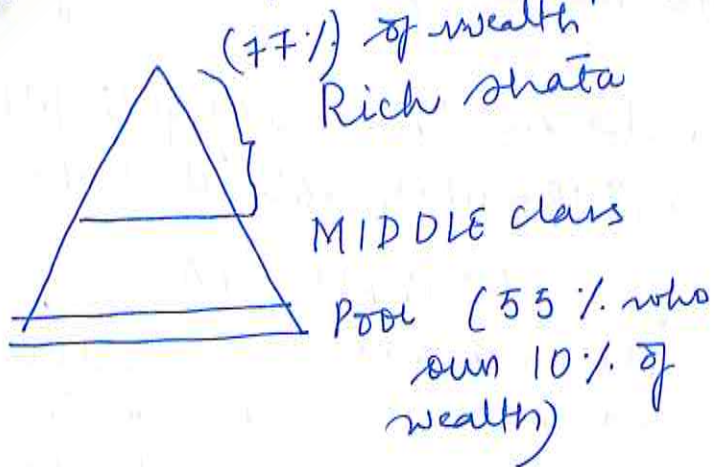 (77%) of wealth
Rich strata
MIDDLE class
Poor (55% who
own 10% of
wealth)